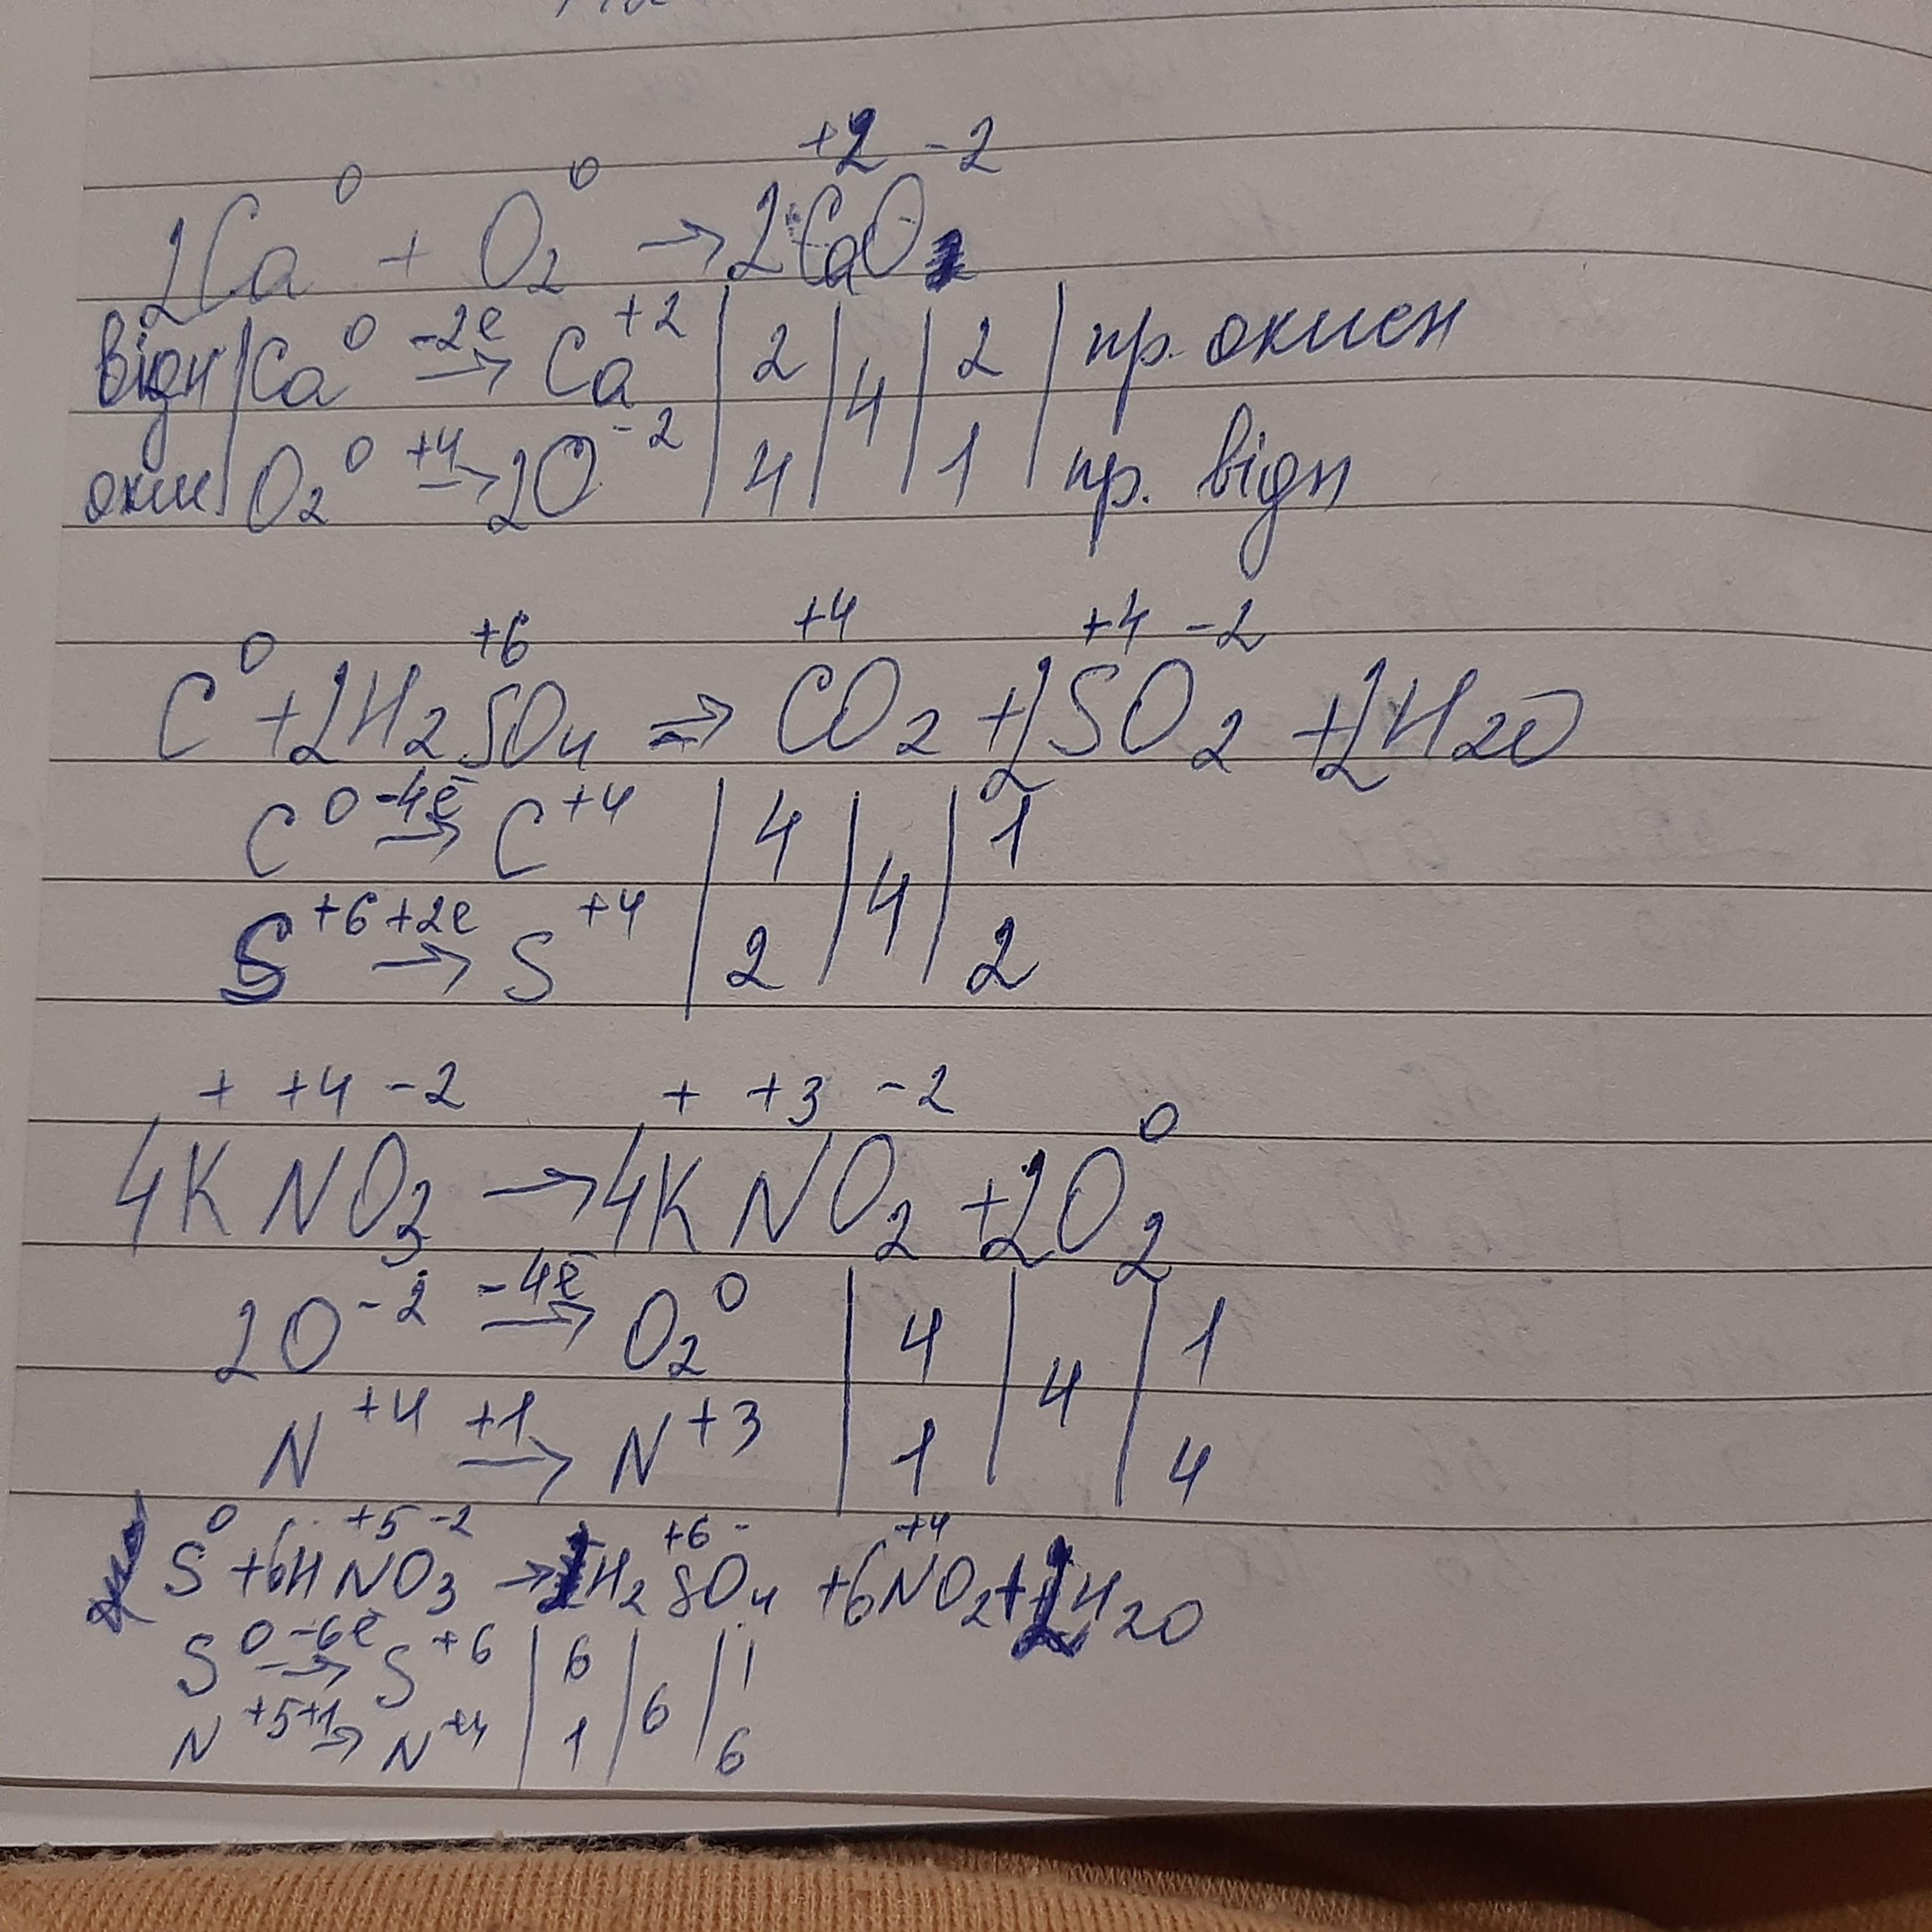 2Ca⁰ + O₂⁰ → 2Ca⁺²O⁻²
відн | Ca⁰ -2e→ Ca⁺² | 2 | 4 | 2 | пр. окисн
окис | O₂⁰ +4→ 2O⁻² | 4 | | 1 | пр. відн
C⁰ + 2H₂S⁺⁶O₄ → C⁺⁴O₂ + 2S⁺⁴O₂⁻² + 2H₂O
C⁰ -4ē→ C⁺⁴ | 4 | 4 | 1
S⁺⁶ +2e→ S⁺⁴ | 2 | | 2
4K⁺N⁺⁴O₃⁻² → 4K⁺N⁺³O₂⁻² + 2O₂⁰
2O⁻² -4ē→ O₂⁰ | 4 | 4 | 1
N⁺⁴ +1→ N⁺³ | 1 | | 4
S⁰ + 6HN⁺⁵O₃⁻² → H₂S⁺⁶O₄⁻ + 6N⁺⁴O₂ + 2H₂O
S⁰ -6ē→ S⁺⁶ | 6 | 6 | 1
N⁺⁵ +1→ N⁺⁴ | 1 | | 6